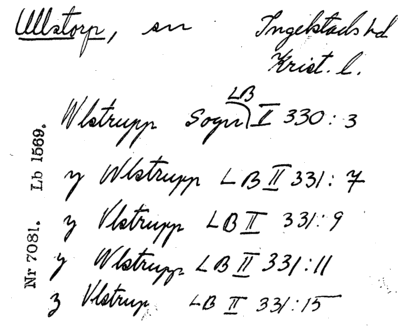 Ullstorp, sn Ingelstads hd
Krist. l.
Wlstrupp Sogn LB II 330:3
y Wlstrupp LB II 331:7
y Vlstrupp LB II 331:9
y Wlstrupp LB II 331:11
z Vlstrup LB II 331:15
Nr 7081. Lb 1569.